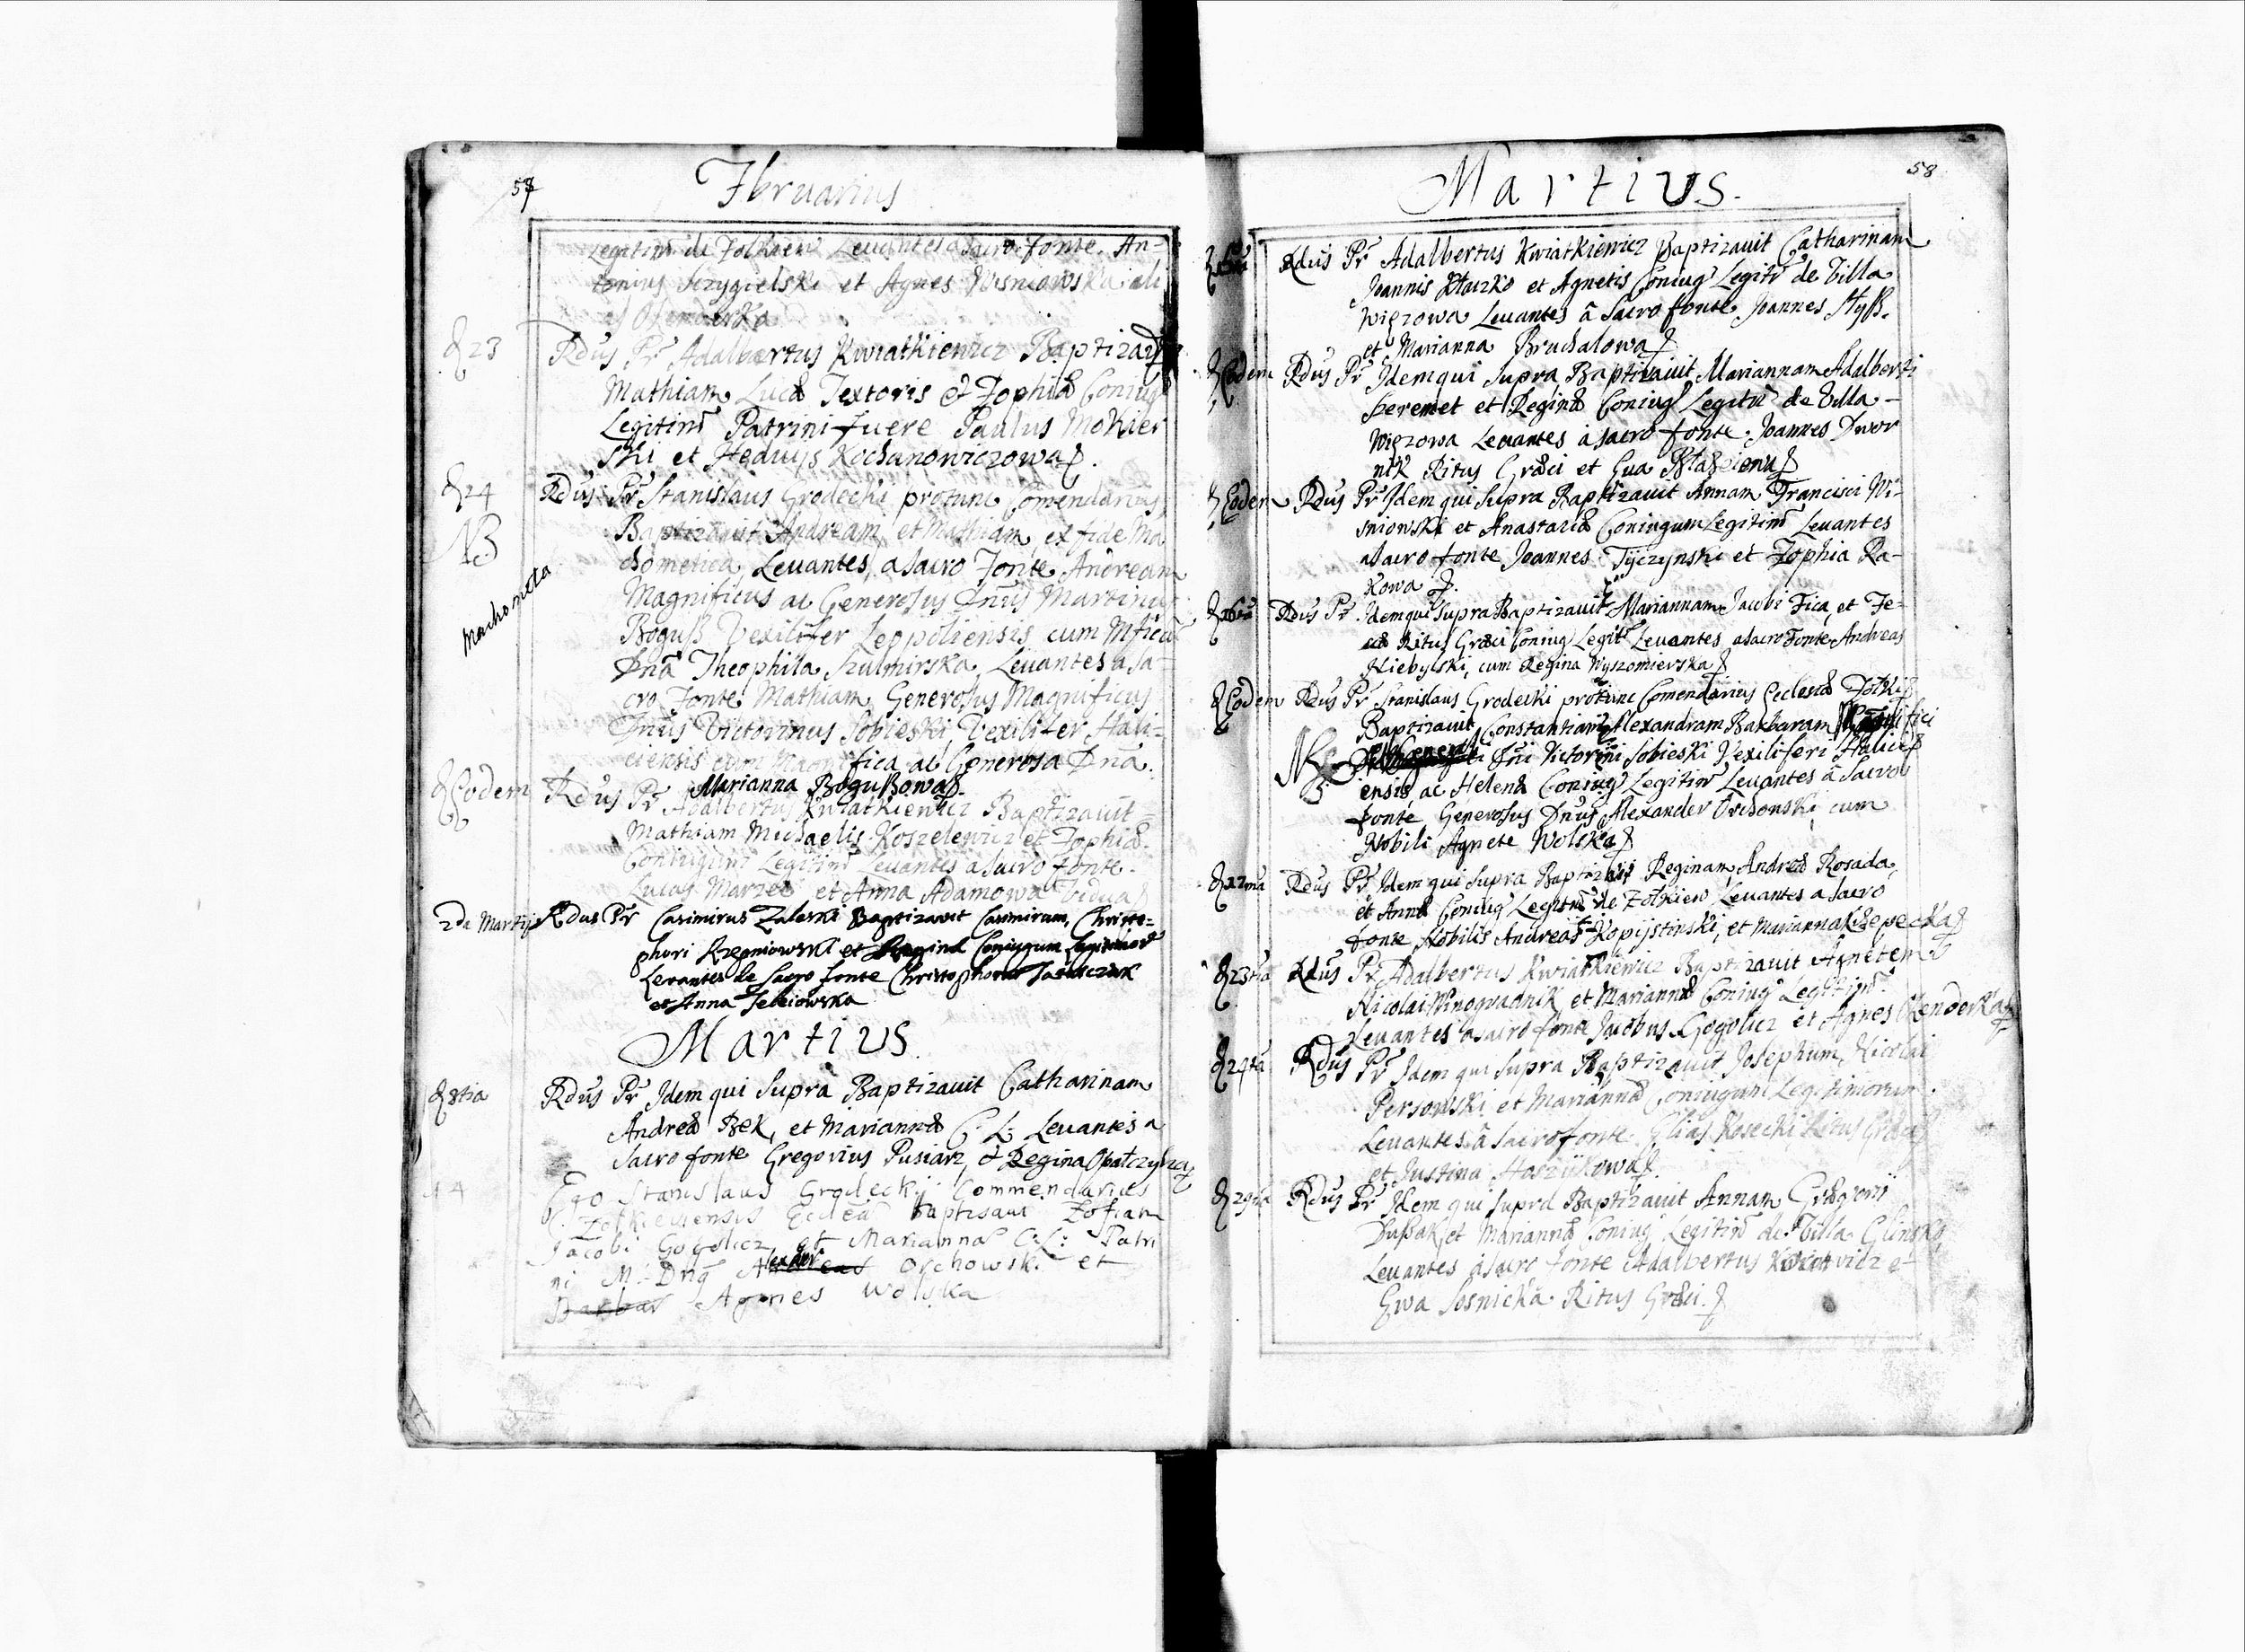 57
Februarius
Legitim de Zolkiew Leuantes a Sacro fonte. An-
tonius Szczygielski et Agnes Wisniowska ali
as
d 23 Rdus Pr Adalbertus Kwiatkiewicz Baptizauit
Mathiam Lucæ Textoris et Zophiæ Coniug
Legitim Patrini fuere Paulus Mokier
ski et Heduijs Kochanowiczowa
d 24 Rdus Pr Stanislaus Grodecki protunc Comendarius
NB Baptizauit Andream et Mathiam ex fide Ma
chometica Leuantes a Sacro Fonte Andream
Machometa
Magnificus ac Generosus Dnus Martinus
Boguß Vexilifer Leopoliensis cum Mfica
Dna Theophila Szulmirska Leuantes a Sa-
cro Fonte Mathiam Generosus Magnificus
Dnus Victorinus Sobieski Vexilifer Hali-
ciensis cum Magnifica ac Generosa Dna
Marianna Bogußowa
d Eodem Rdus Pr Adalbertus Kwiatkiewicz Baptizauit
Mathiam Michaelis Koszelewicz et Zophiæ
Coniugum Legitim Leuantes a Sacro fonte
Lucas et Anna Adamowa Vidua
2da Martij Rdus Pr Casimirus Zaleski Baptizauit Casimirum, Christo-
phori Rzepniowski et Coniugum Legitimor
Levantes de Sacro fonte Christophorus
et Anna
Martius
d 8tia Rdus Pr Idem qui Supra Baptizauit Catharinam
Andreæ Bek, et Mariannæ C: L: Leuantes a
Sacro fonte Gregorius Pusiarz, et Regina Opatczyka
14 Ego Stanislaus Grodeckij Commendarius
Zolkieviensis Ecclea baptisaui Zofiam
Jacobi Gogolicz et Marianna C: L: Patri
ni M: Dnq Alexander Orchowski et
Agnes Wolska
58
Martius.
Rdus Pr Adalbertus Kwiatkiewicz Baptizauit Catharinam
Joannis et Agnetis Coniug Legitr de Villa
Wiezowa Leuantes â Sacro fonte Joannes Hyß.
et Marianna Bruchalowa
d Eodem Rdus Pr Idem qui Supra Baptizauit Mariannam Adalberti
Szeremet et Reginæ Coniug Legitr de Villa -
Wiezowa Leuantes â Sacro fonte Joannes Dwor
nik Ritus Græci et Eua Blazeiowa
d Eodem Rdus Pr Idem qui Supra Baptizauit Annam Francisci Wi-
sniowski et Anastaziæ Coniugum Legitim Leuantes
a Sacro fonte Joannes Tyczynski et Zophia Ra-
kowa
Rdus Pr Idem qui Supra Baptizauit Mariannam Jacobi Fica, et Fe-
Ritus Græci Coniug Legitr Leuantes a Sacro Fonte Andreas
Niebylski, cum Regina Wyszomierska
d Eodem Rdus Pr Stanislaus Grodecki protunc Comendarius Ecclesiæ Zolkie
Baptizauit Constantiam Alexandram Barbaram
NB Dni Victorini Sobieski Vexiliferi Halici
ensis, ac Helenæ Coniug Legitim Leuantes â Sacro
fonte, Generosus Dnus Alexander Orchowski, cum
Nobili Agnete Wolska
d 22ma Rdus Pr Idem qui Supra Baptizauit Reginam, Andreæ Rosada,
et Annæ Coniug Legitm de Zolkiew, Leuantes a Sacro
fonte, Nobilis Andreas Kopijstinski, et Marianna Rzepecka
d 23tia Rdus Pr Adalbertus Kwiatkiewicz Baptizauit Agnetem
Nicolai Winogradnik et Mariannæ Coniug Legitim
Leuantes a Sacro fonte Jacobus Gogolicz et Agnes Olenderka
d 24ta Rdus Pr Idem qui Supra Baptizauit Josephum, Nicolai
Persowski et Mariannæ Coniugum Legitimorum.
Leuantes â Sacro fonte Elias Kosecki Ritus Græci
et Justina Haszukowa
d 29na Rdus Pr Idem qui Supra Baptizauit Annam Gregorii
Dußak, et Mariannæ Coniug Legitim de Villa Glinsko,
Leuantes a Sacro fonte Adalbertus et
Ewa Sosnicka Ritus Græci.